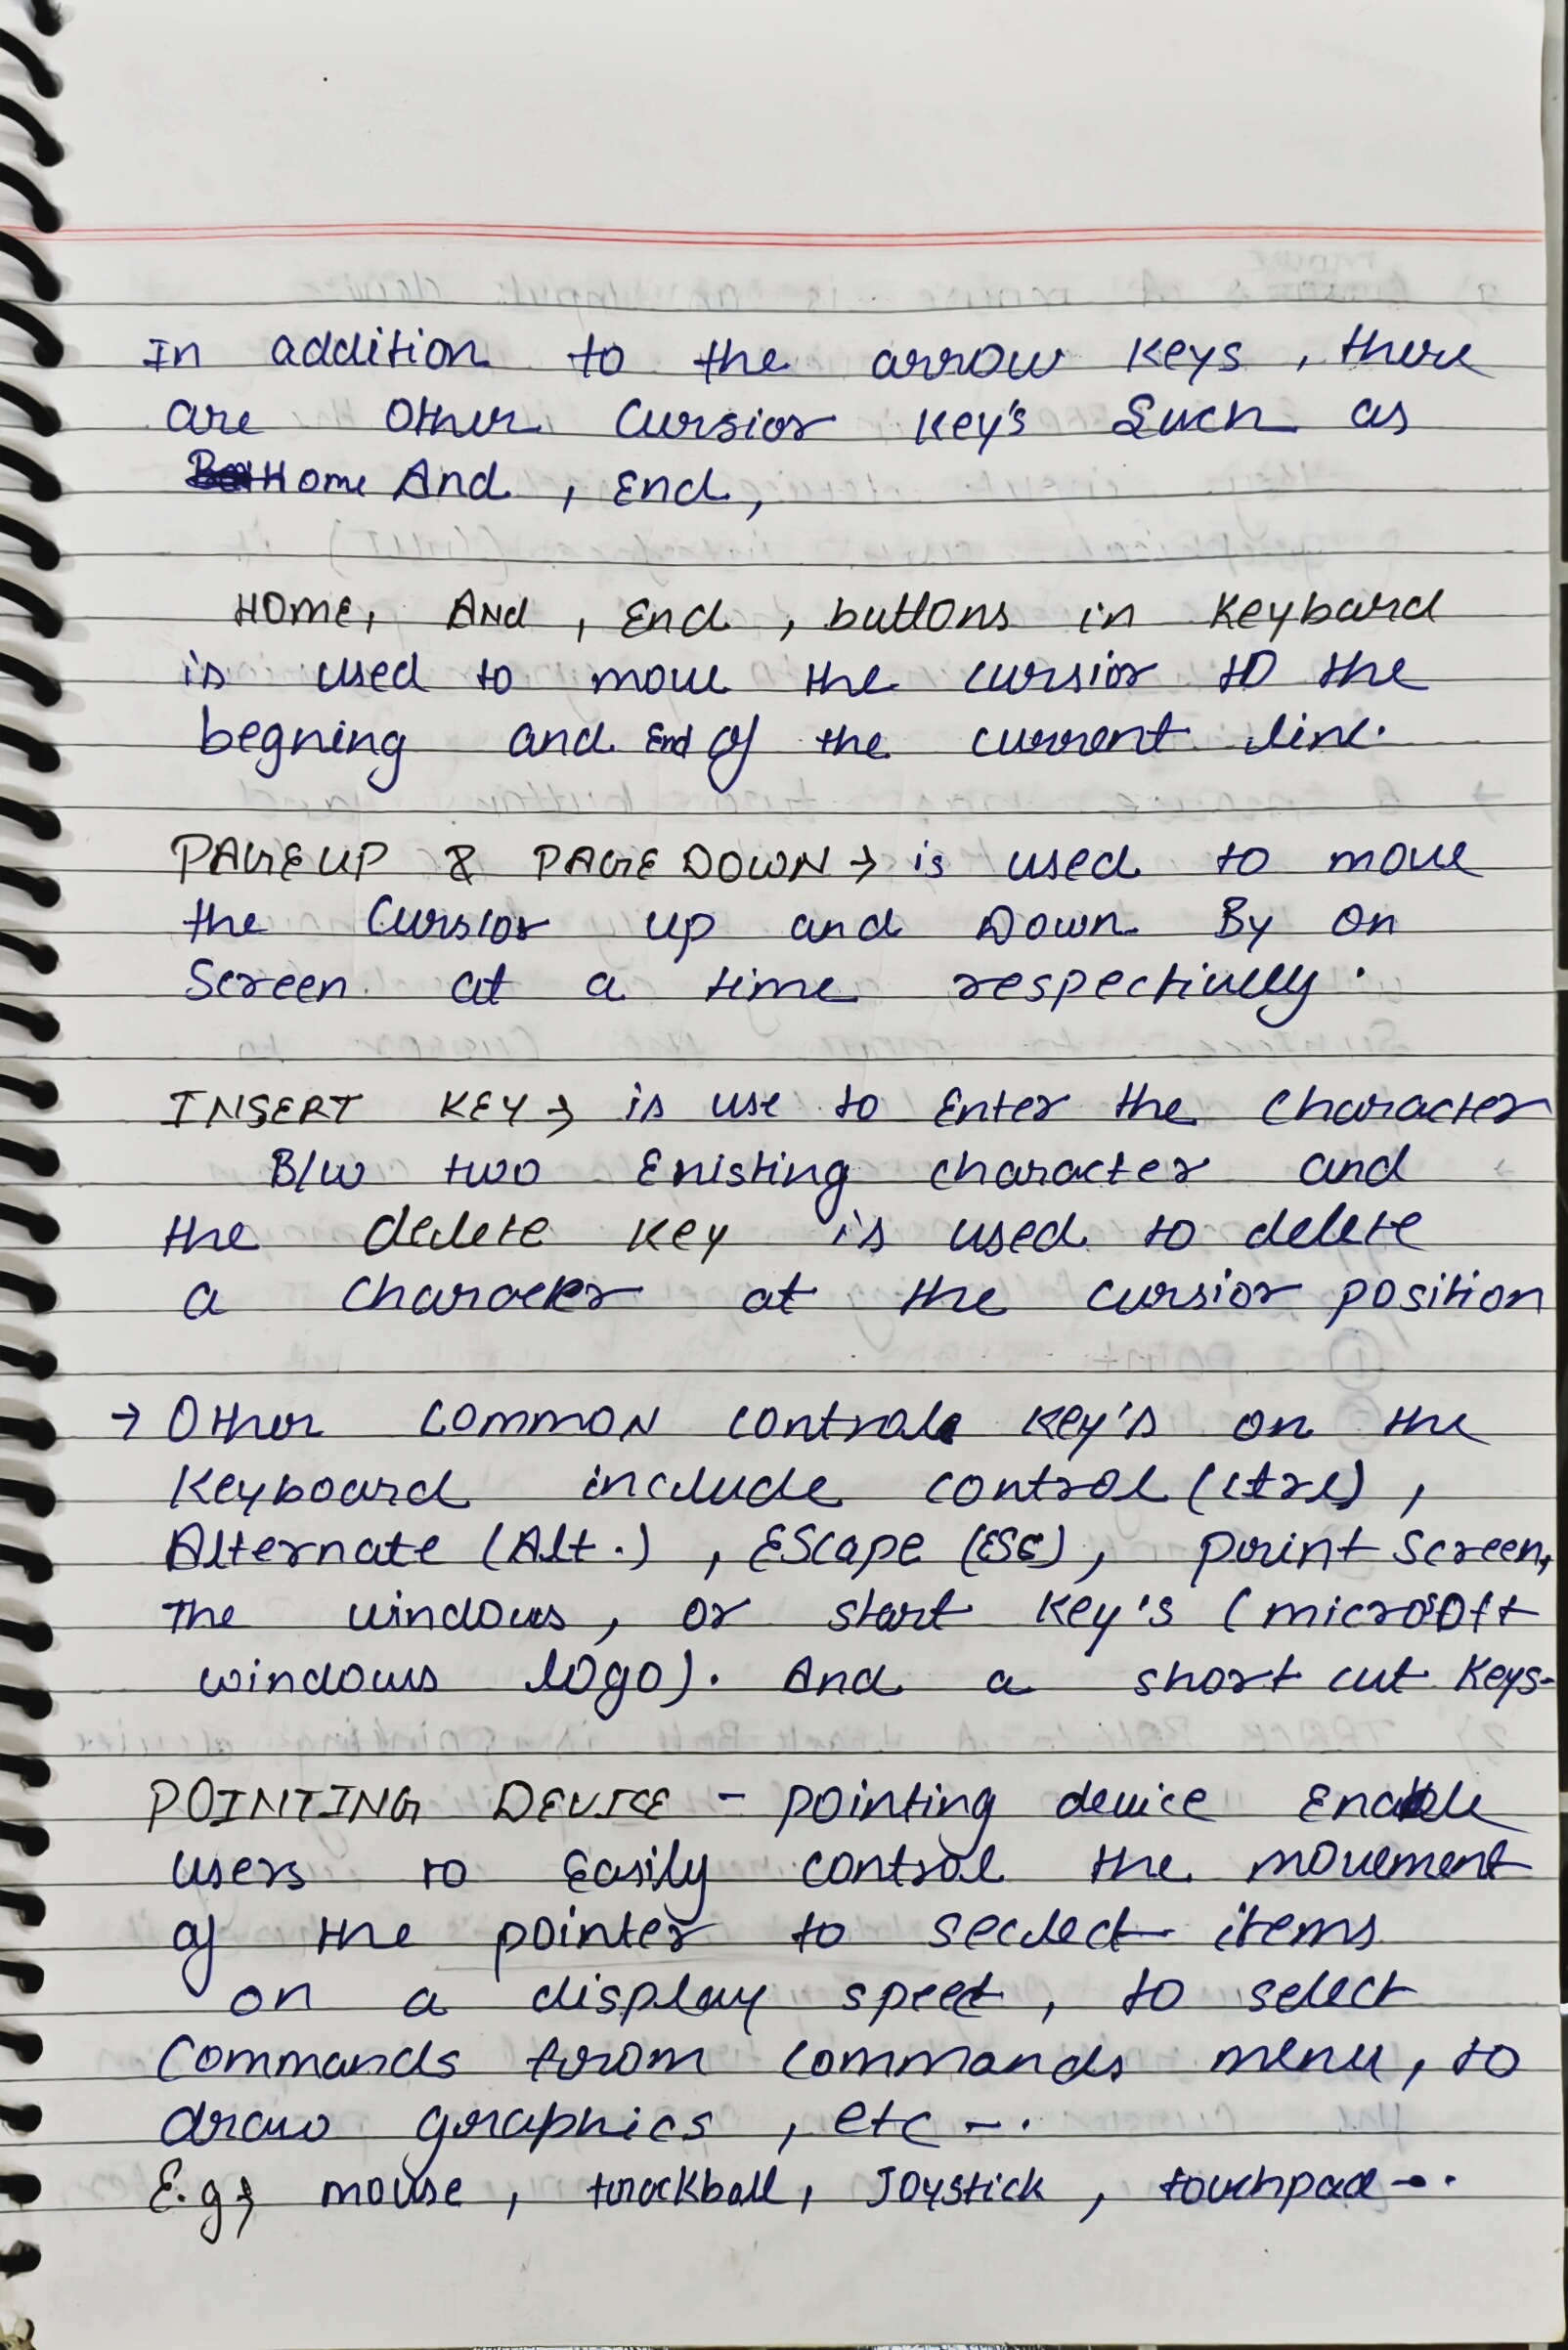 In addition to the arrow keys, there
are other Cursior key's Such as
Home And, End,
HOME, ANd, End, buttons in keyboard
is used to move the cursior to the
begning and End of the current line.
PAGE UP & PAGE DOWN → is used to move
the Cursior up and Down By on
Screen at a time respectively.
INSERT KEY → is use to Enter the Character
B/w two Existing character and
the delete key is used to delete
a character at the cursior position
→ Other COMMON control key's on the
Keyboard include control (ctrl),
Alternate (Alt.), EScape (ESC), print Screen,
The windows, or start key's (microsoft
windows logo). And a short cut keys-
POINTING DEVICE - pointing device Enable
users to Easily control the movement
of the pointer to seclect items
on a display speed, to select
Commands from commands menu, to
draw graphics, etc -.
E.g → mouse, trackball, Joystick, touchpad -.